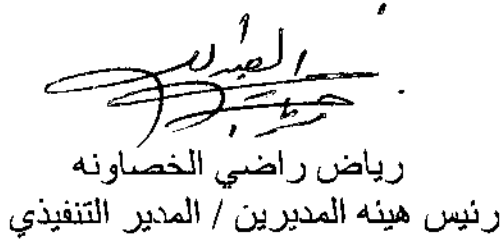 رياض راضي الخصاونه
رئيس هيئه المديرين / المدير التنفيذي